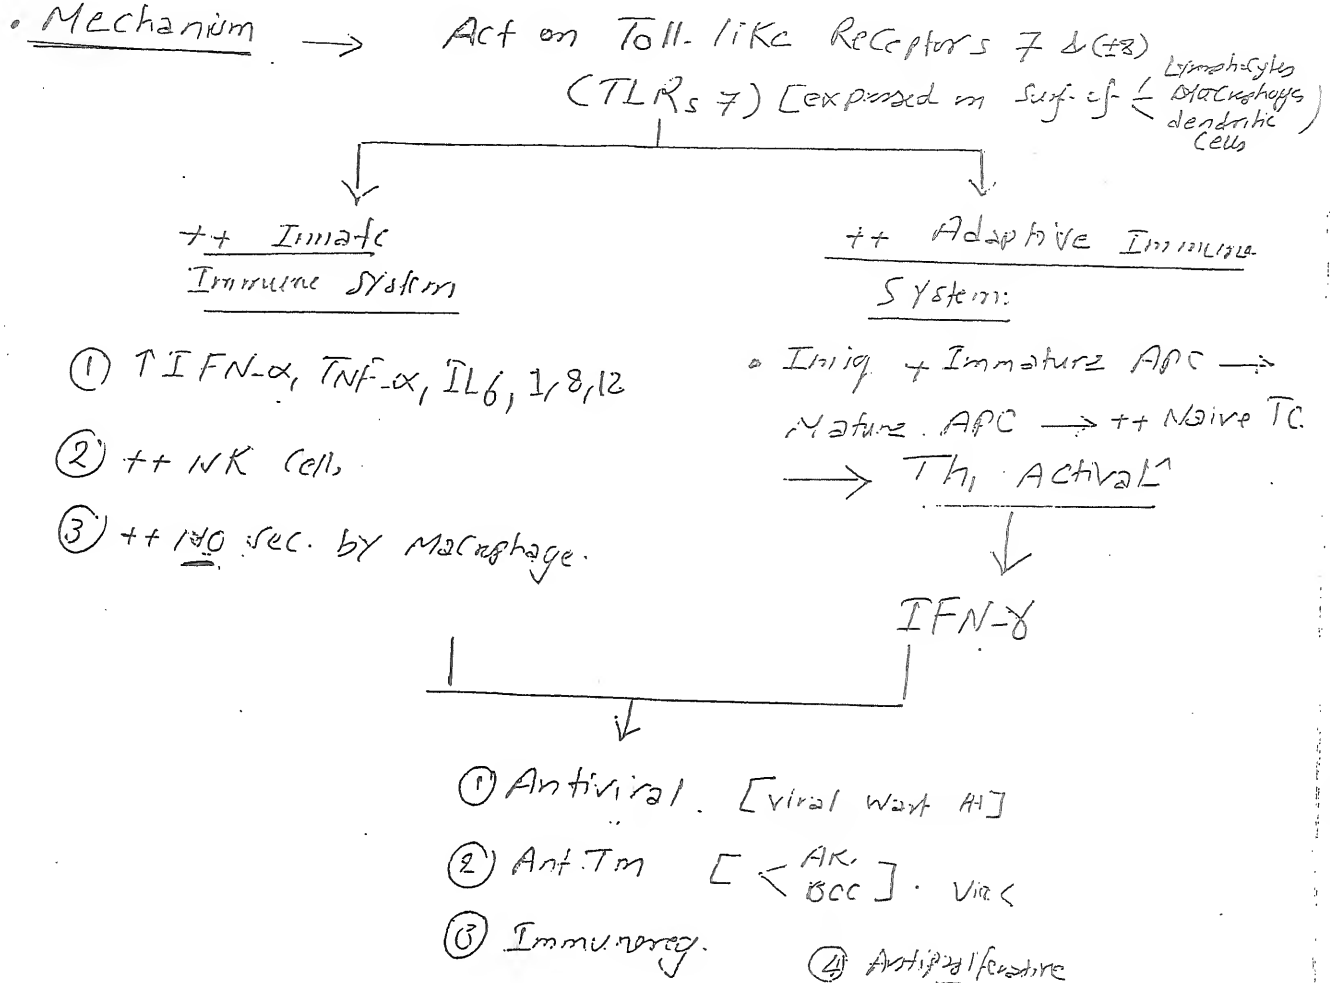 • Mechanism → Act on Toll-like Receptors 7 & (±8)
(TLRs 7) [expressed on surf. of < Lymphocytes
Macrophages
dendritic
Cells )
++ Innate
Immune System
① ↑ IFN-α, TNF-α, IL6, 1, 8, 12
② ++ NK Cells
③ ++ NO sec. by Macrophage.
++ Adaptive Immune
System:
• Imiq + Immature APC →
Mature APC → ++ Naive Tc
→ Th1 Activat^n
IFN-γ
① Antiviral. [viral wart]
② Ant.Tm [ < AK.
BCC ]. via <
③ Immunoreg.
④ Antiproliferative